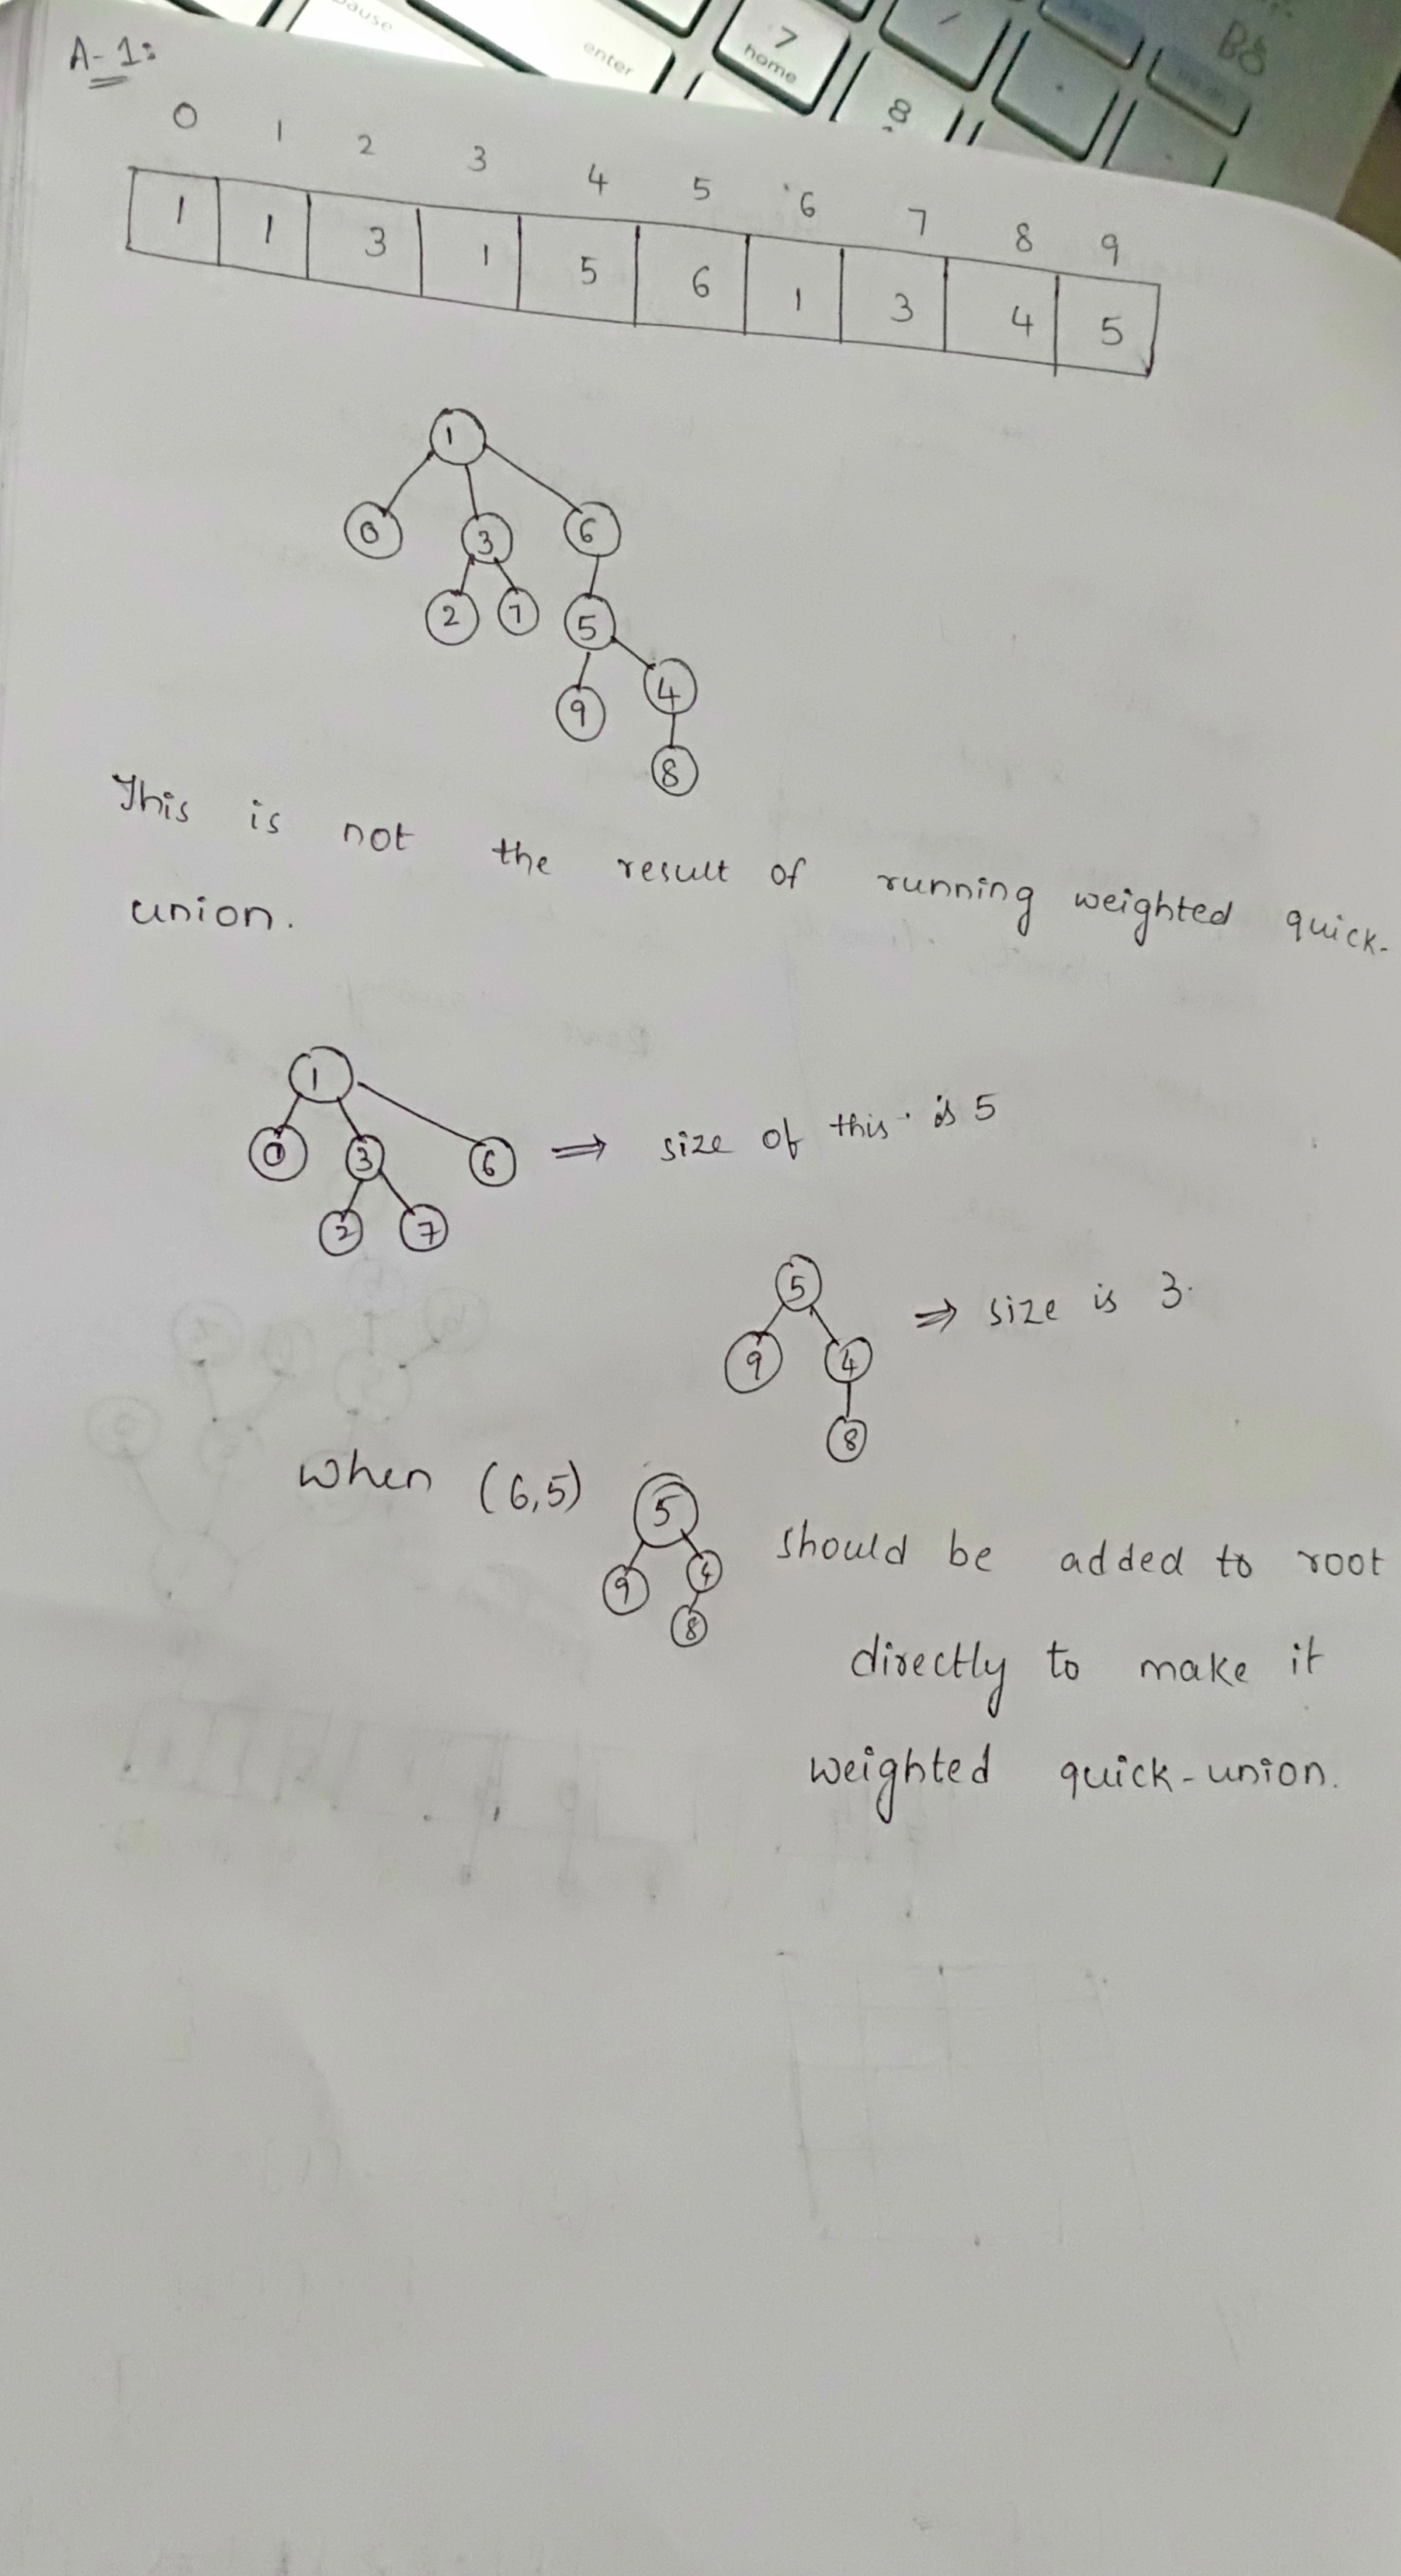 pause
enter
7
home
8
A-1:
0 1 2 3 4 5 6 7 8 9
1 1 3 1 5 6 1 3 4 5
1
0 3 6
2 7 5
9 4
8
This is not the result of running weighted quick-
union.
1
0 3 6 ⇒ size of this is 5
2 7
5 ⇒ size is 3.
9 4
8
when (6,5) 5 should be added to root
9 4
8
directly to make it
weighted quick-union.